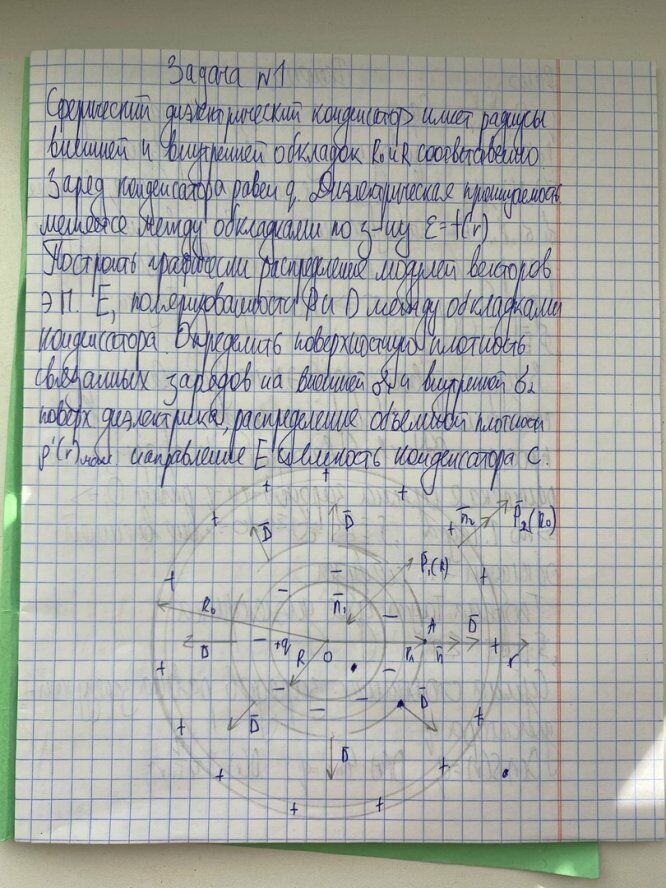 Задача №1
Сферический диэлектрический конденсатор имеет радиусы
внешней и внутренней обкладок R₀ и R соответственно.
Заряд конденсатора равен q. Диэлектрическая проницаемость
меняется между обкладками по з-ну ε=f(r)
Построить графически распределение модулей векторов
эл. E, поляризованности P и D между обкладками
конденсатора. Определить поверхностную плотность
связанных зарядов на внешней σ'₁ и внутренней σ₂
поверх диэлектрика, распределение объемной плотности
ρ'(r) направление E ёмкость конденсатора C.
+ + +
+ D̄ D̄ + n̄₂ P̄₂(R₀)
+ − − P̄₁(R) +
R₀ − n̄₁ −
D̄ − +q O A D̄ +
R rA n̄ r
+ − − +
− − D̄
+ D̄ D̄ +
+ +
+ +